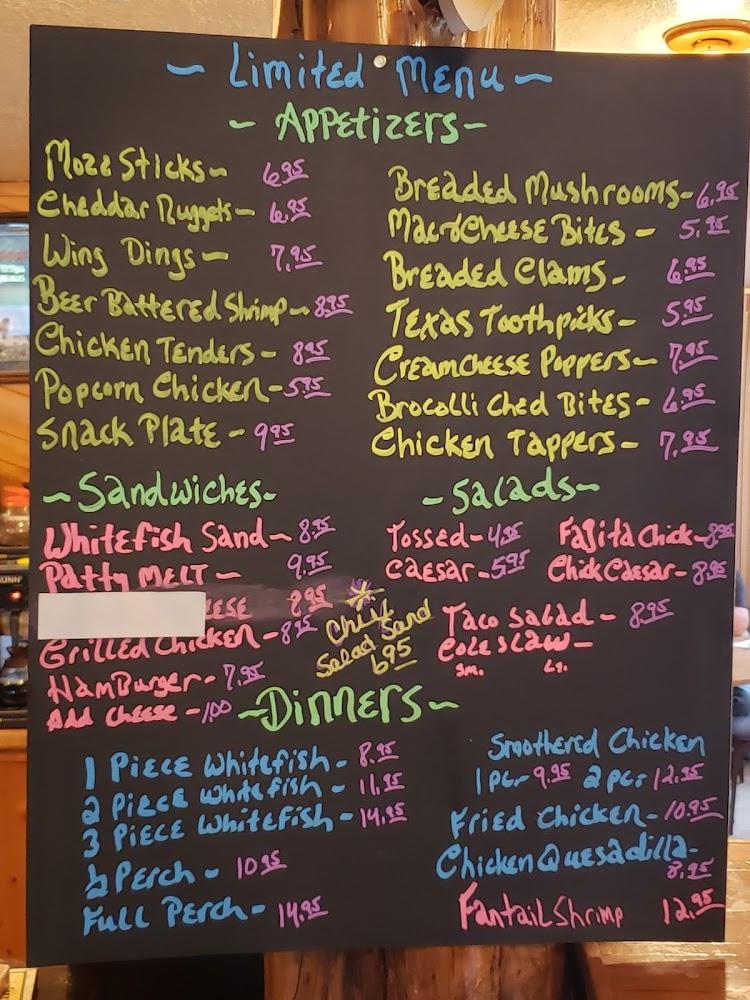 ~ Limited Menu ~
~ Appetizers ~
Mozz Sticks - 6.95
Cheddar Nuggets - 6.95
Wing Dings - 7.95
Beer Battered Shrimp - 8.95
Chicken Tenders - 8.95
Popcorn Chicken - 5.95
Snack Plate - 9.95
Breaded Mushrooms - 6.95
Mac & Cheese Bites - 5.95
Breaded Clams - 6.95
Texas Toothpicks - 5.95
Creamcheese Poppers - 7.95
Brocolli Ched Bites - 6.95
Chicken Tappers - 7.95
~ Sandwiches ~
Whitefish Sand - 8.95
Patty Melt - 9.95
eese 8.95
Grilled Chicken - 8.95
Hamburger - 7.95
Add Cheese - 1.00
Chix
Salad Sand
6.95
~ Salads ~
Tossed - 4.95
Caesar - 5.95
Fajita Chick - 8.95
Chick Caesar - 8.95
Taco Salad - 8.95
Coleslaw -
Sm. Lg.
~ Dinners ~
1 Piece Whitefish - 8.95
2 Piece Whitefish - 11.95
3 Piece Whitefish - 14.95
½ Perch - 10.95
Full Perch - 14.95
Smothered Chicken
1 pc. 9.95 2 pc. 12.95
Fried Chicken - 10.95
Chicken Quesadilla -
8.95
Fantail Shrimp 12.95